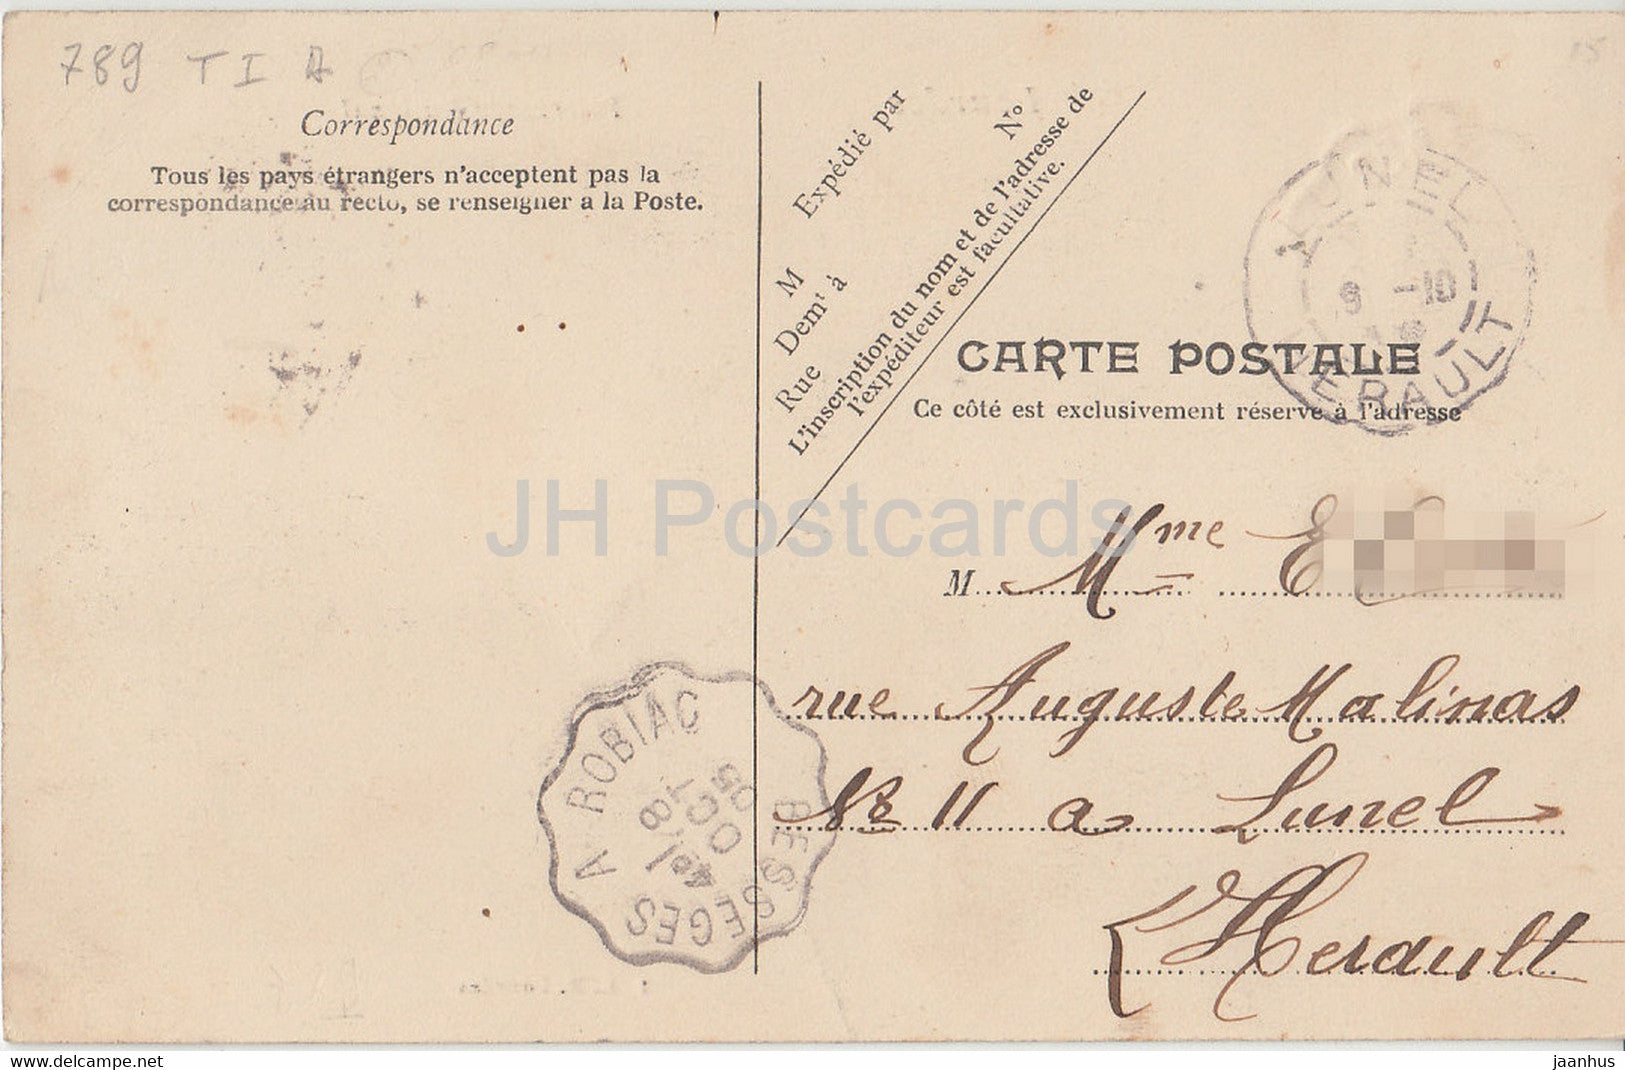 789 T I A
Correspondance
Tous les pays étrangers n'acceptent pas la
correspondance au recto, se renseigner a la Poste.
Expédié par
M
Demt à
Rue
No
L'inscription du nom et de l'adresse de
l'expéditeur est facultative.
LUNEL
9 -10
HERAULT
CARTE POSTALE
Ce côté est exclusivement réservé à l'adresse
JH Postcards
M Mme E
rue Auguste Malinas
No 11 a Lunel
L'Herault
BESSEGES A ROBIAC
8
OCT
05
www.delcampe.net
jaanhus